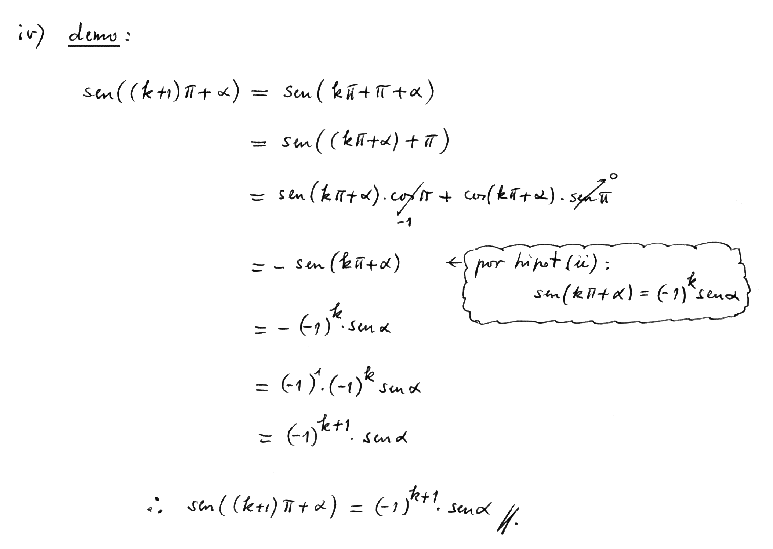 iv) demo:
sen((k+1)π+α) = sen(kπ+π+α)
= sen((kπ+α)+π)
= sen(kπ+α).cosπ + cos(kπ+α).senπ
-1
0
= - sen(kπ+α) ← por hipot(ii):
sen(kπ+α) = (-1)^k senα
= - (-1)^k . senα
= (-1)^1 . (-1)^k senα
= (-1)^k+1 . senα
∴ sen((k+1)π+α) = (-1)^k+1 . senα //.